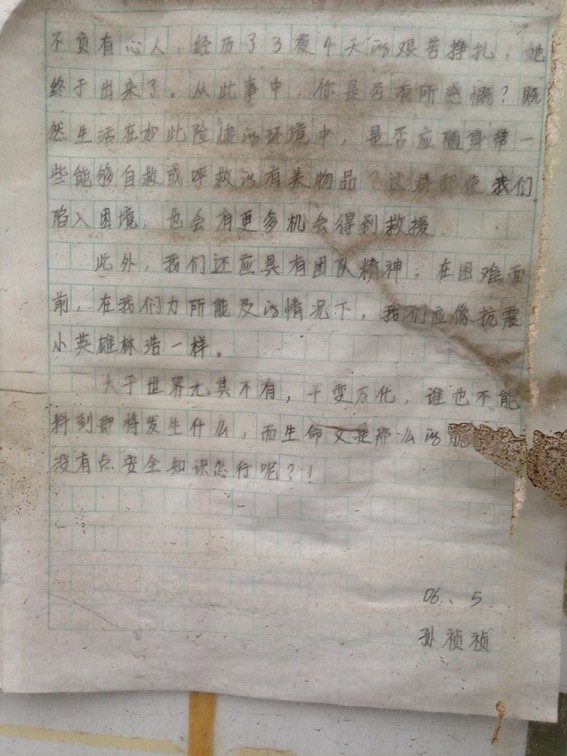 不负有心人,经历了3夜4天的艰苦挣扎,她
终于出来了。从此事中,你是否有所感悟?既
然生活在如此险峻的环境中,是否应随身带一
些能够自救或呼救的有关物品?这样即使我们
陷入困境,也会有更多机会得到救援
此外,我们还应具有团队精神。在困难面
前,在我们力所能及的情况下,我们应像抗震
小英雄林浩一样。
大千世界尤其不有,千变万化,谁也不能
料到即将发生什么,而生命又是那么的脆
没有点安全知识怎行呢?!
06、5
孙祯祯